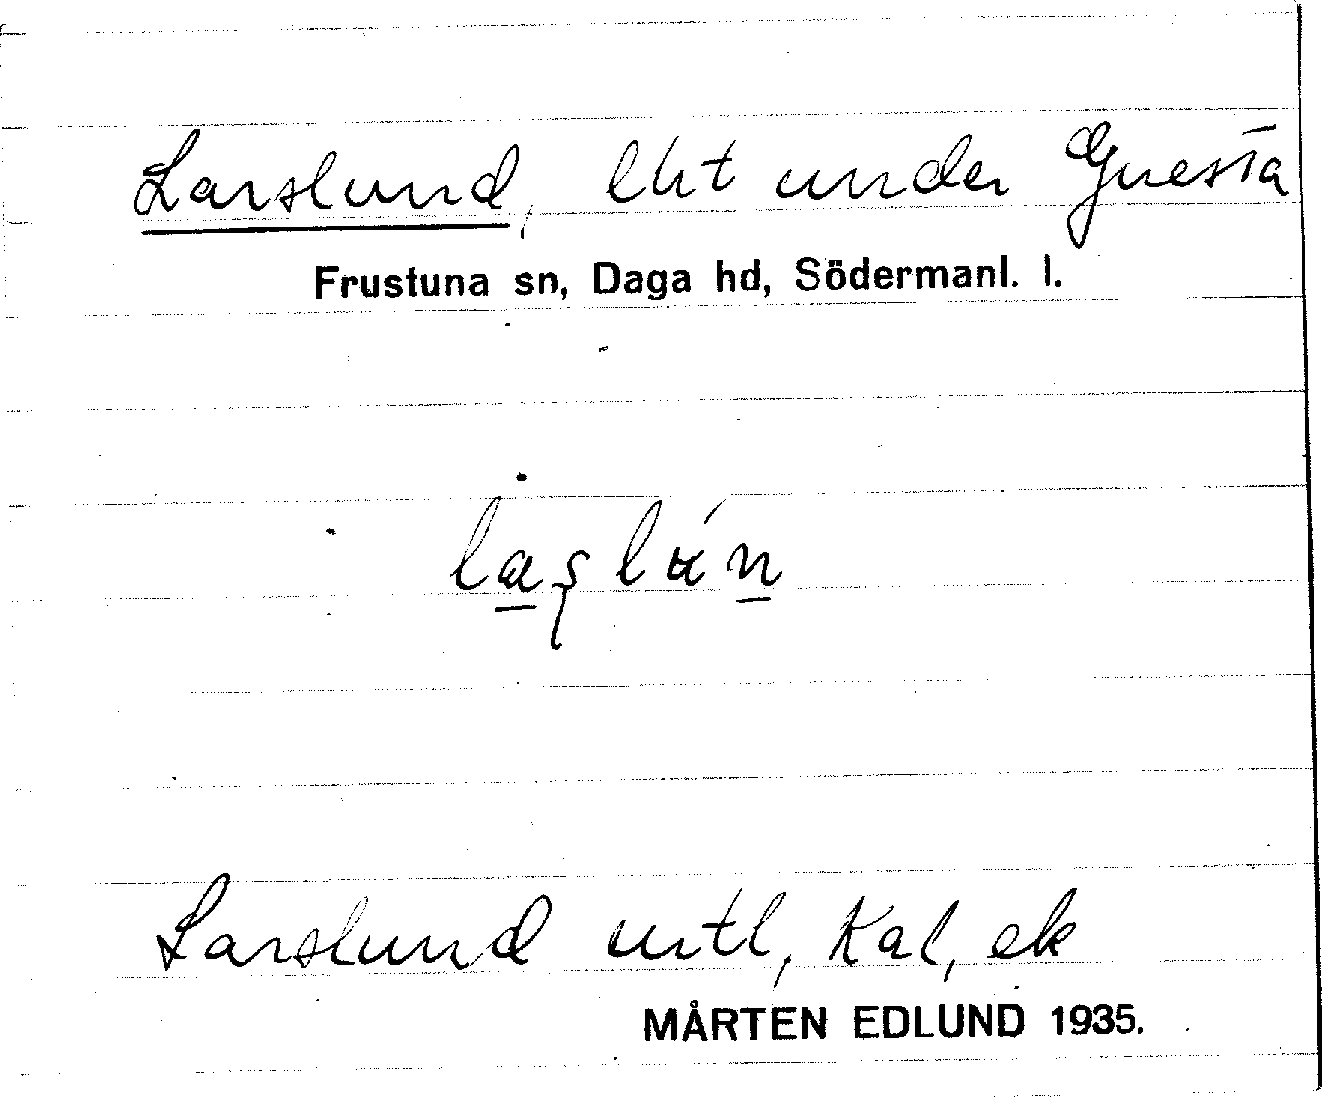 Larslund, lht under Gnesta
Frustuna sn, Daga hd, Södermanl. l.
Larslund urtl, Kal, ek
MÅRTEN EDLUND 1935.